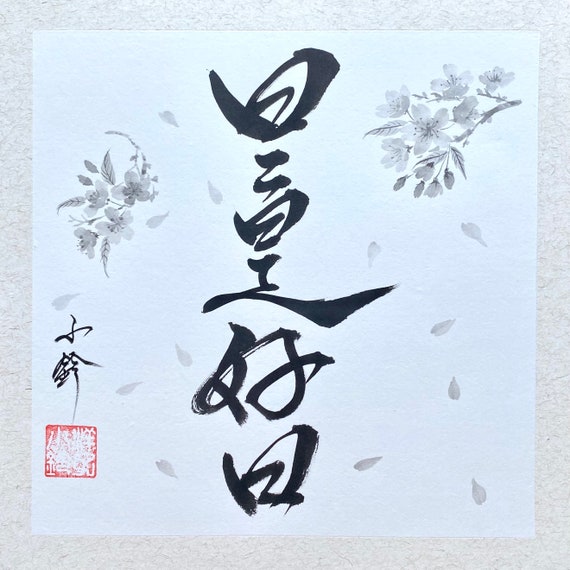 日々是好日
小鈴